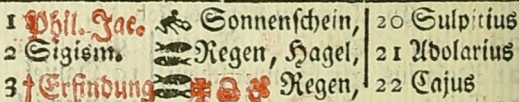 1 Phil. Jac. Sonnenschein, 20 Sulpitius
2 Sigism. Regen, Hagel, 21 Adolarius
3 † Erfindung Regen, 22 Cajus